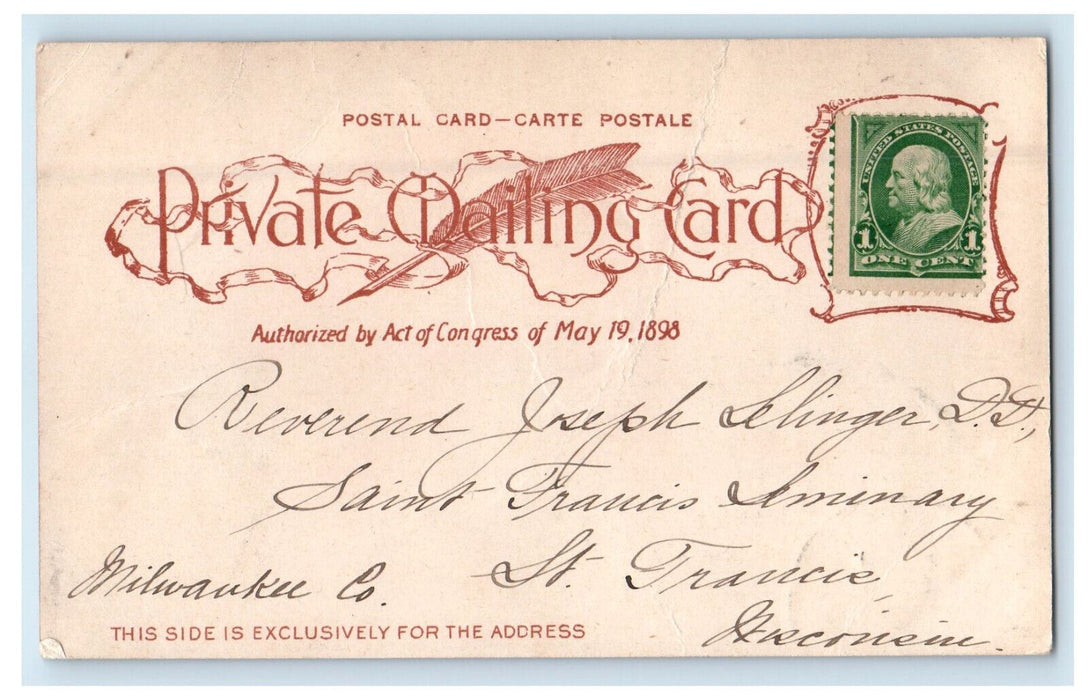 POSTAL CARD—CARTE POSTALE
Private Mailing Card
UNITED STATES POSTAGE
1 1
ONE CENT
Authorized by Act of Congress of May 19, 1898
Reverend Joseph Selinger, D.D.,
Saint Francis Seminary
St. Francis,
Milwaukee Co.
Wisconsin.
THIS SIDE IS EXCLUSIVELY FOR THE ADDRESS